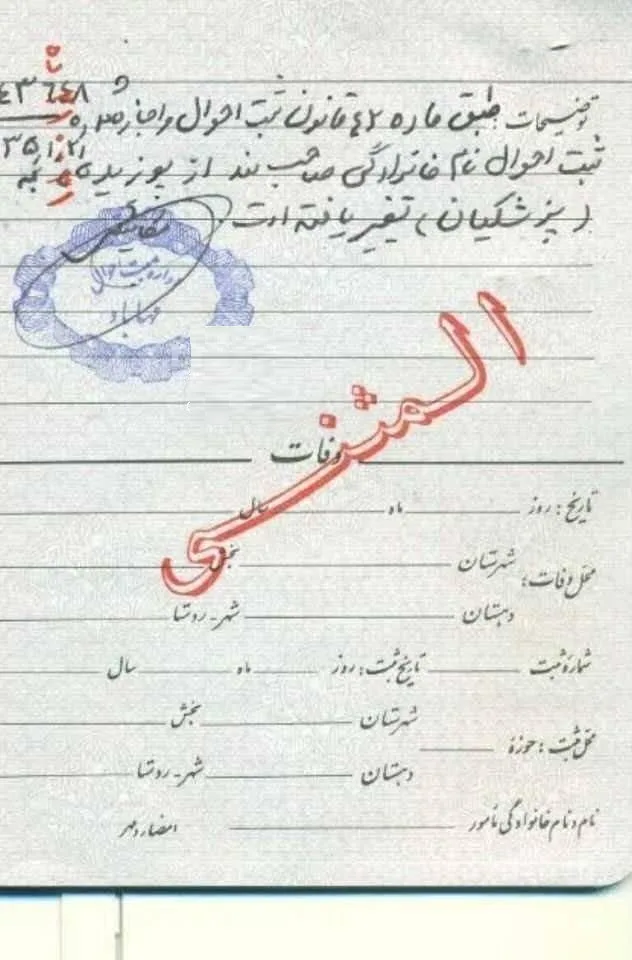 توضیحات طبق ماده ٤٢ قانون ثبت احوال و اجازه ٤٣٦٤٨
ثبت احوال نام خانوادگی صاحب سند از به
(پزشکیان) تغییر یافته است.
مهاباد
المثنی
وفات
تاریخ: روز ماه سال
محل وفات: شهرستان بخش
دهستان شهر-روستا
شماره ثبت تاریخ ثبت: روز ماه سال
شهرستان بخش
محل ثبت: حوزه
دهستان شهر-روستا
نام و نام خانوادگی مأمور امضاء و مهر